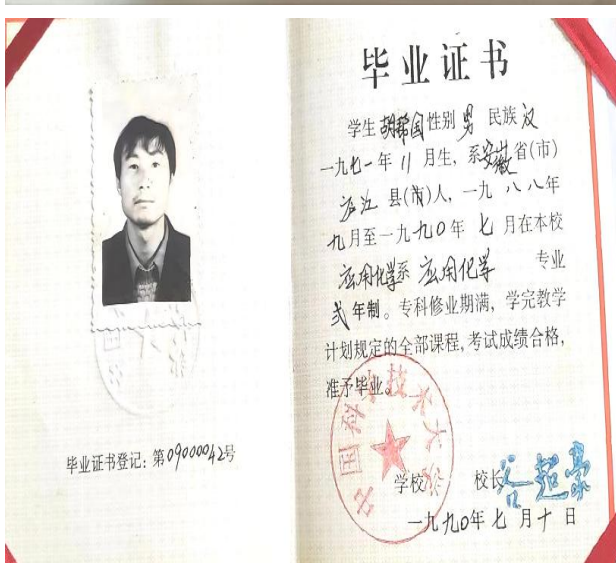 毕业证书
学生胡希国性别男民族汉
一九七一年11月生，系安徽省(市)
庐江县(市)人，一九八八年
九月至一九九0年七月在本校
应用化学系应用化学专业
弍年制。专科修业期满，学完教学
计划规定的全部课程，考试成绩合格，
准予毕业。
中国科学技术大学
学校
校长谷超豪
一九九0年七月十日
毕业证书登记：第09000042号